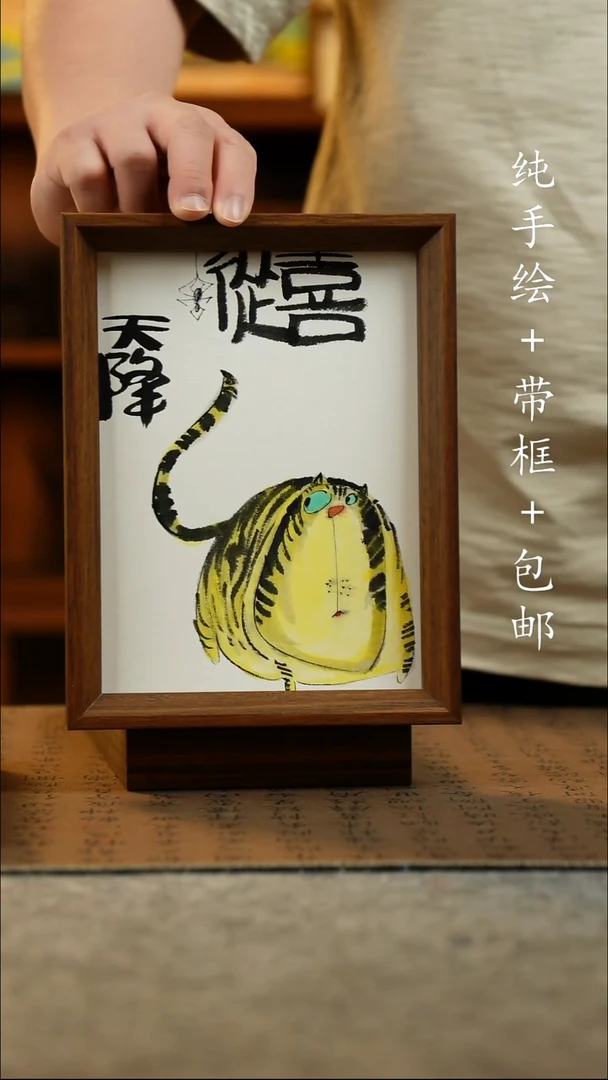 喜從
天降
纯手绘+带框+包邮